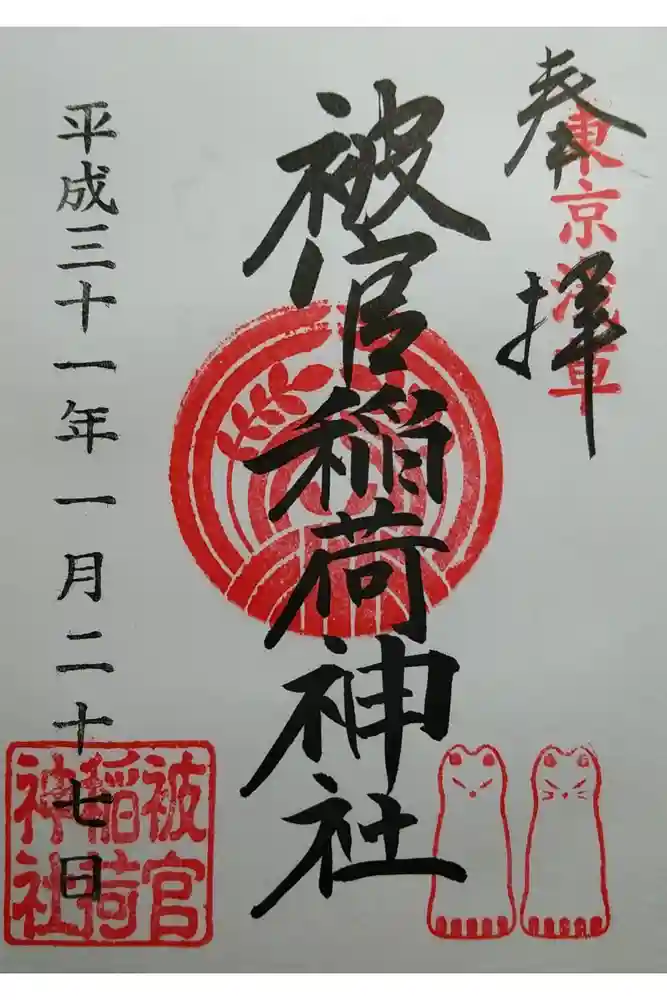 奉拝
東京浅草
被官稲荷神社
平成三十一年一月二十七日
被官
稲荷
神社